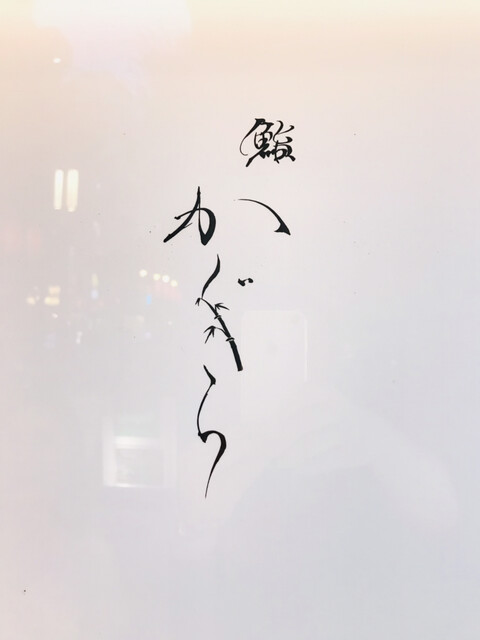 鮨
かぐら